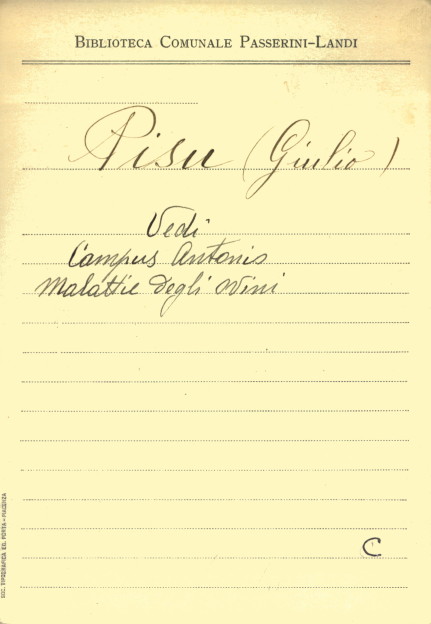 BIBLIOTECA COMUNALE PASSERINI-LANDI
Pisu (Giulio)
Vedi
Campus Antonio
Malattie degli Ovini
C
SOC. TIPOGRAFICA ED. PORTA - PIACENZA